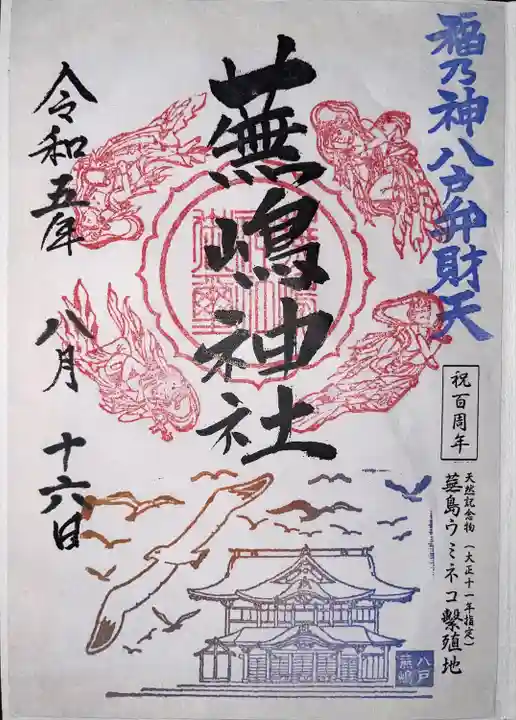 福乃神八戸弁財天
祝百周年
天然記念物(大正十一年指定)
蕪島ウミネコ繫殖地
蕪嶋神社
令和五年
八月
十六日
八戸
蕪嶋